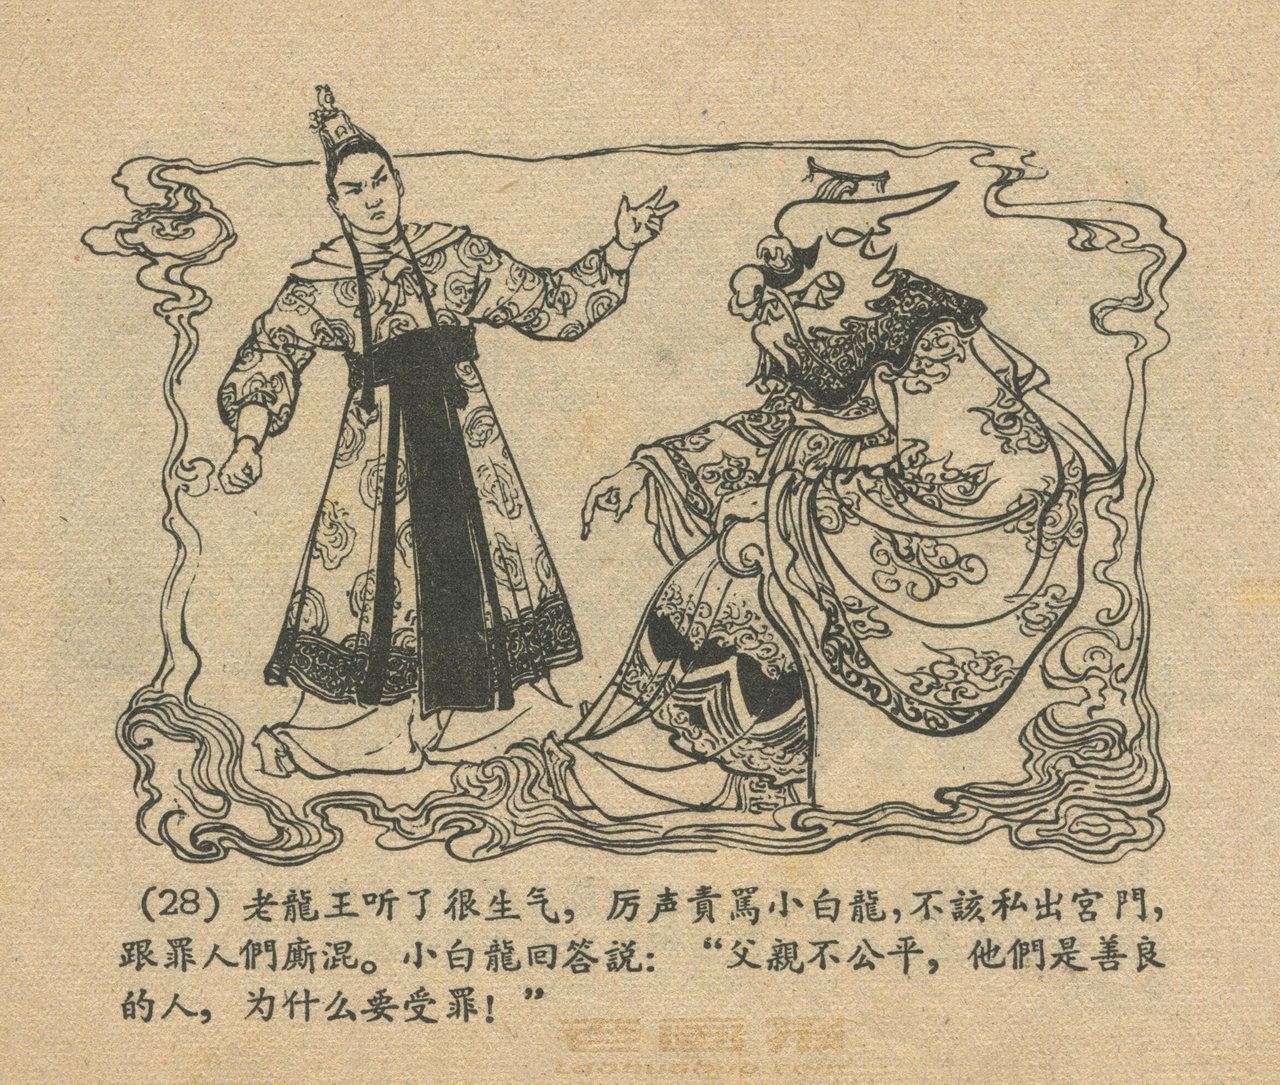 (28) 老龍王听了很生气，厉声責駡小白龍，不該私出宮門，
跟罪人們廝混。小白龍回答説：“父親不公平，他們是善良
的人，为什么要受罪！”